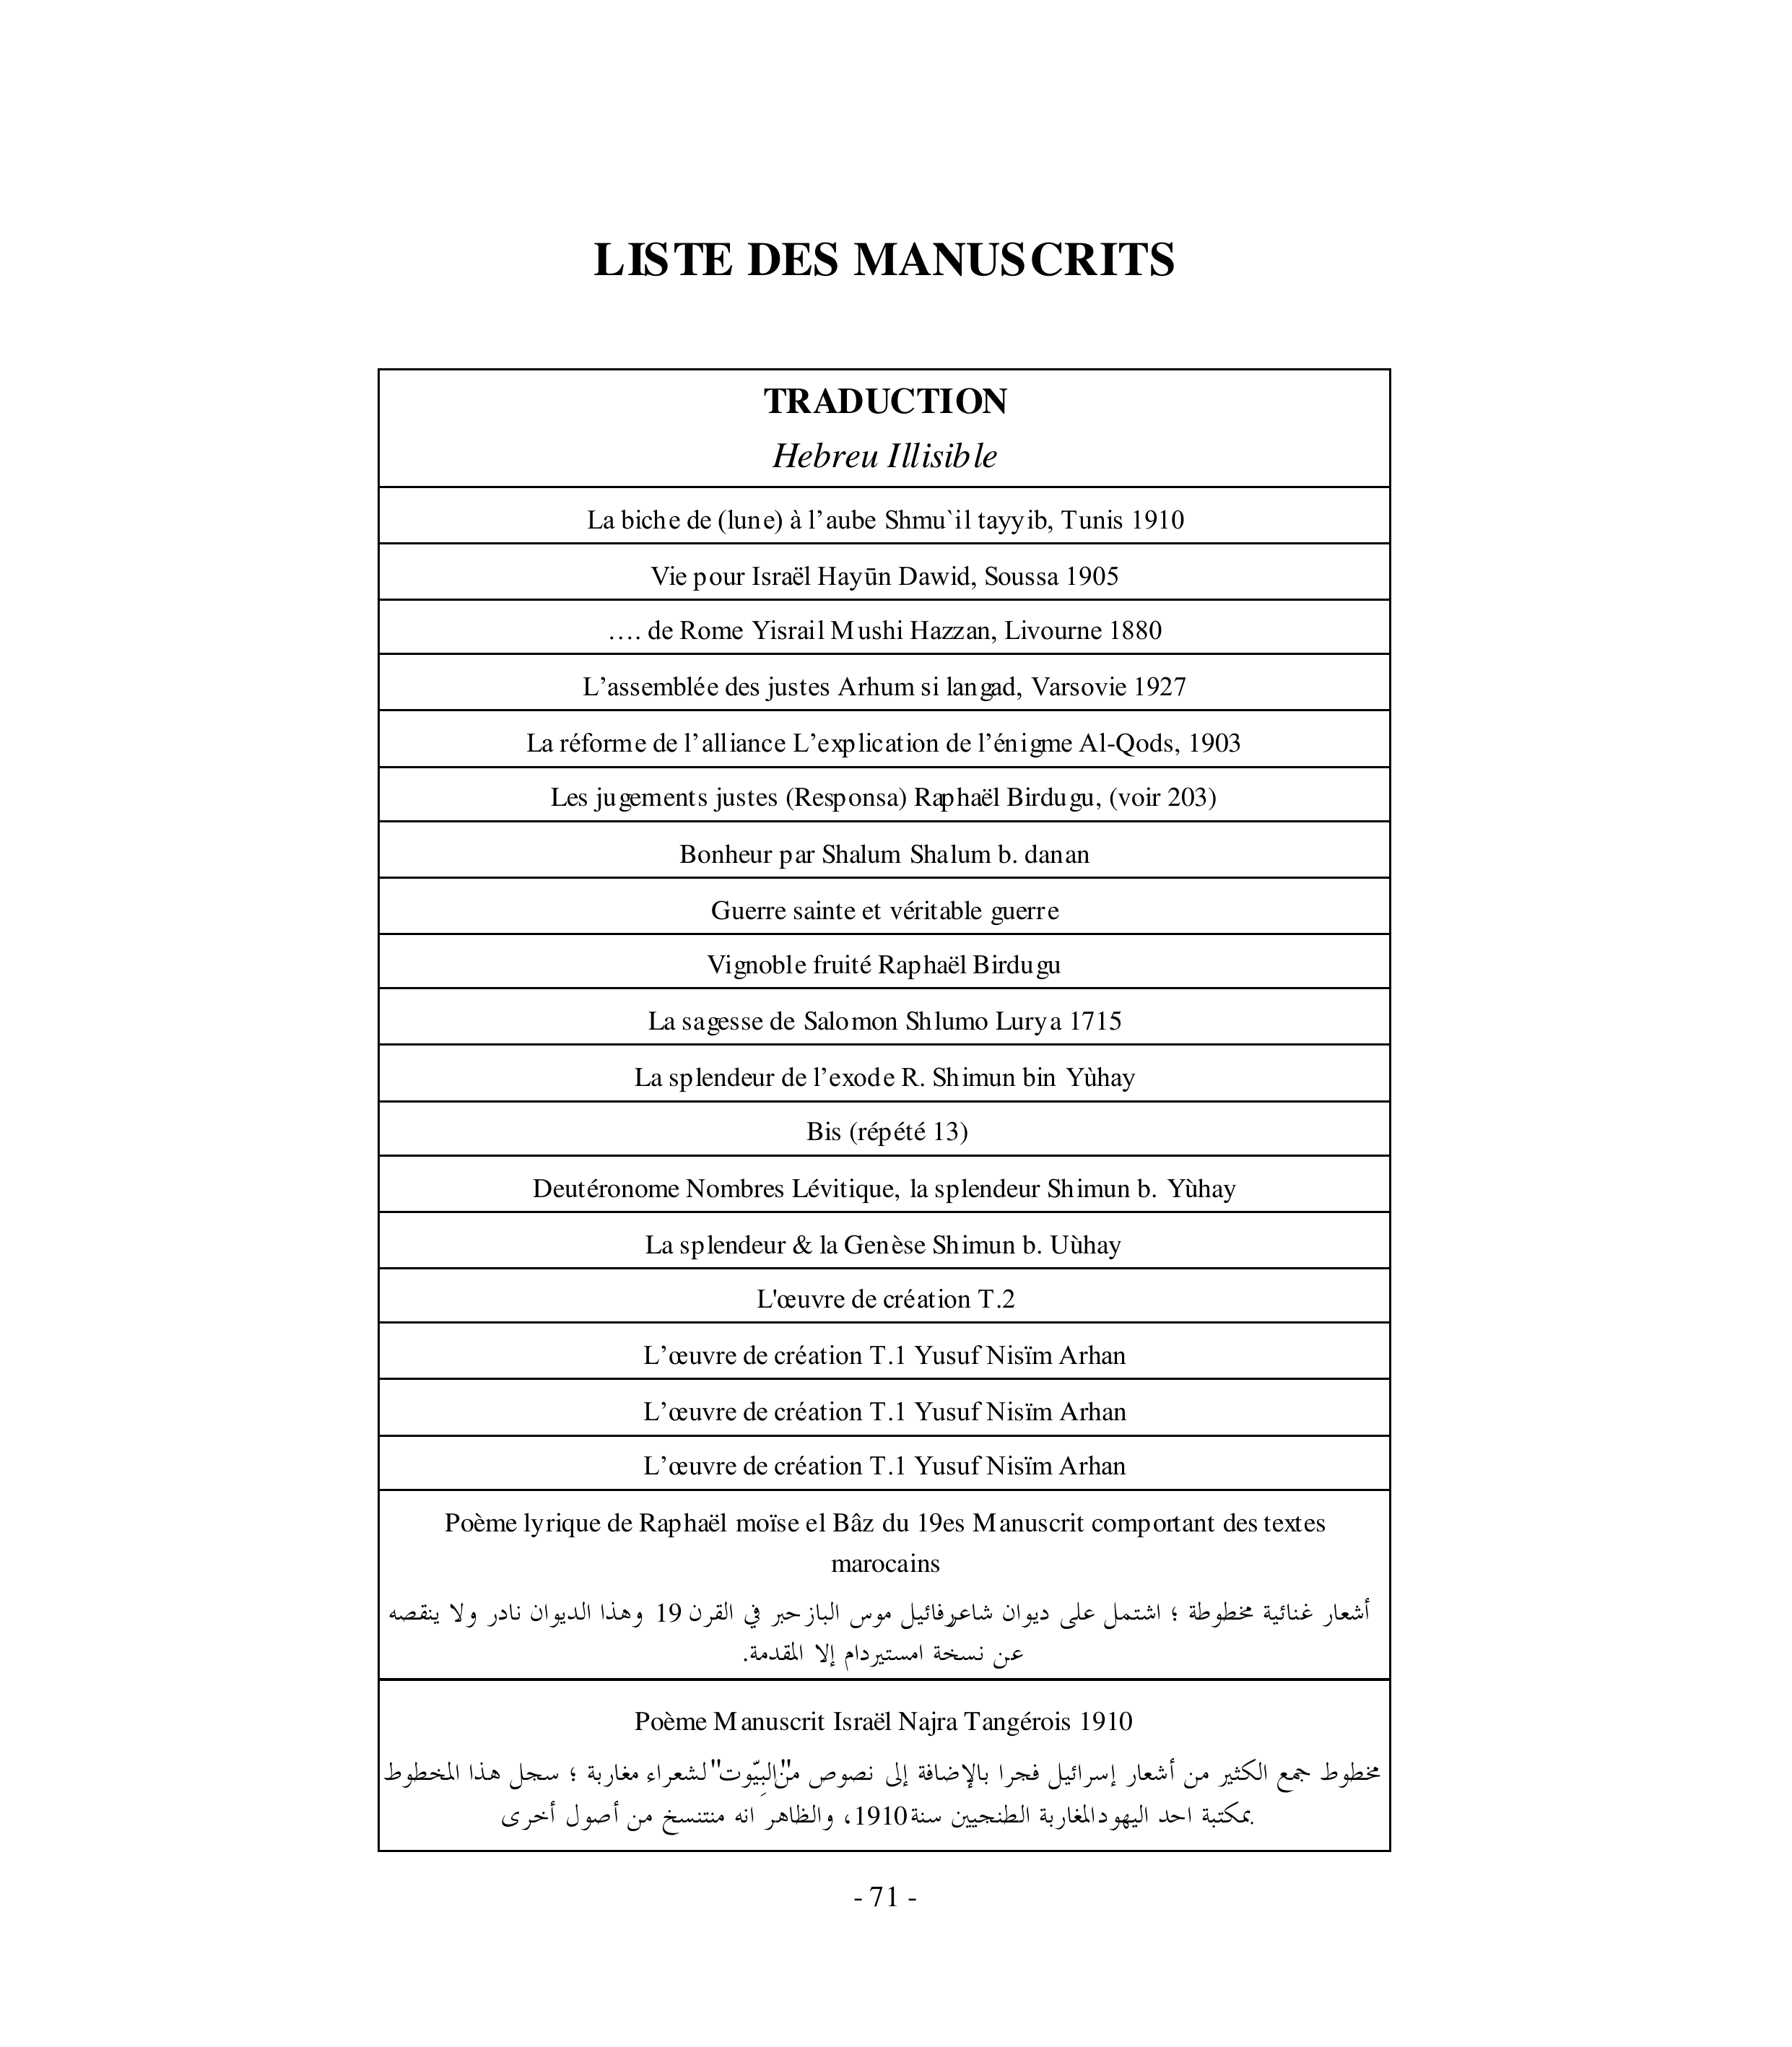 LISTE DES MANUSCRITS
TRADUCTION
Hebreu Illisible
La biche de (lune) à l’aube Shmu`il tayyib, Tunis 1910
Vie pour Israël Hayūn Dawid, Soussa 1905
…. de Rome Yisrail Mushi Hazzan, Livourne 1880
L’assemblée des justes Arhum si langad, Varsovie 1927
La réforme de l’alliance L’explication de l’énigme Al-Qods, 1903
Les jugements justes (Responsa) Raphaël Birdugu, (voir 203)
Bonheur par Shalum Shalum b. danan
Guerre sainte et véritable guerre
Vignoble fruité Raphaël Birdugu
La sagesse de Salomon Shlumo Lurya 1715
La splendeur de l’exode R. Shimun bin Yùhay
Bis (répété 13)
Deutéronome Nombres Lévitique, la splendeur Shimun b. Yùhay
La splendeur & la Genèse Shimun b. Uùhay
L'œuvre de création T.2
L’œuvre de création T.1 Yusuf Nisïm Arhan
L’œuvre de création T.1 Yusuf Nisïm Arhan
L’œuvre de création T.1 Yusuf Nisïm Arhan
Poème lyrique de Raphaël moïse el Bâz du 19es Manuscrit comportant des textes
marocains
أشعار غنائية مخطوطة ؛ اشتمل على ديوان شاعر رفائيل موس الباز حبر في القرن 19 وهذا الديوان نادر ولا ينقصه
عن نسخة امستيردام إلا المقدمة.
Poème Manuscrit Israël Najra Tangérois 1910
مخطوط جمع الكثير من أشعار إسرائيل فجرا بالإضافة إلى نصوص من "البِيّوت" لشعراء مغاربة ؛ سجل هذا المخطوط
بمكتبة احد اليهود المغاربة الطنجيين سنة 1910، والظاهر انه منتنسخ من أصول أخرى.
- 71 -